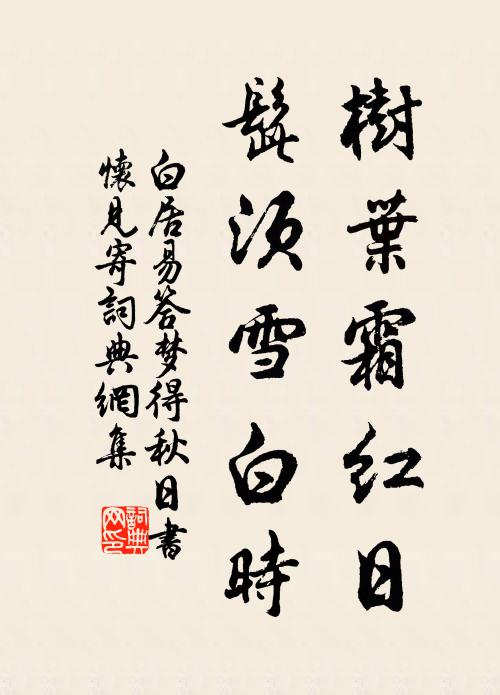 樹葉霜紅日
髭須雪白時
白居易答梦得秋日書
懷見寄詞典網集
詞典
网印